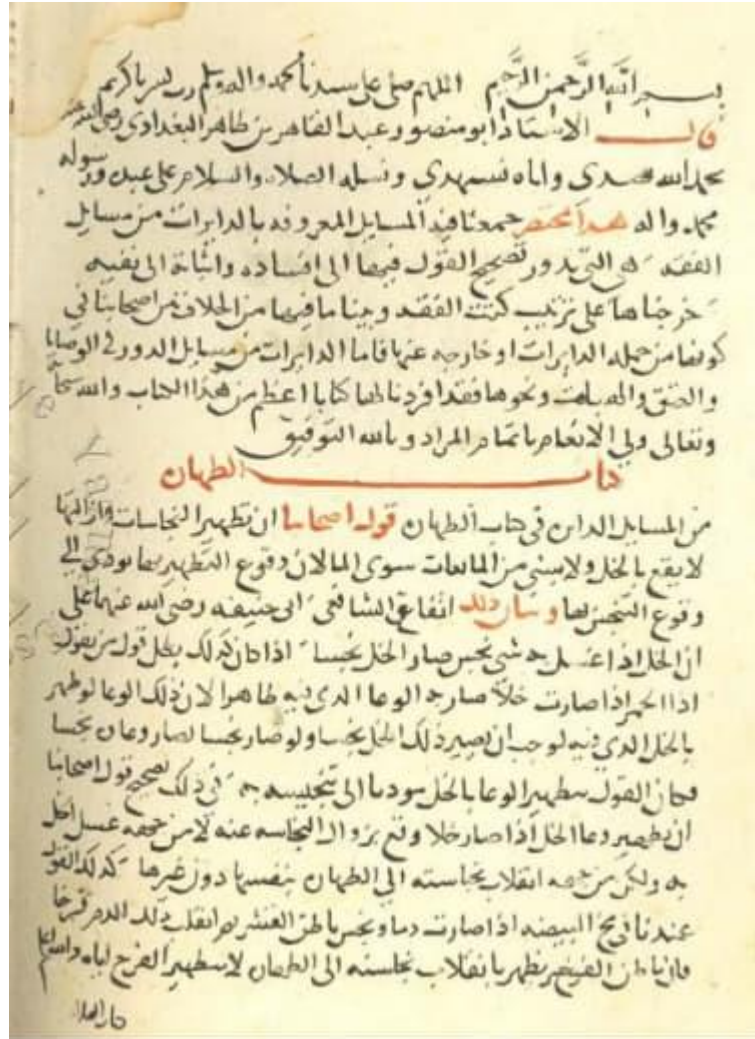 بسم الله الرحمن الرحيم اللهم صل على سيدنا محمد واله وسلم رب يسر يا كريم
قال الاستاذ ابو منصور عبد القاهر بن طاهر البغدادي رضي الله عنه
بحمد الله نبتدي واياه نستهدي ونسله الصلاه والسلام على عبده ورسوله
محمد واله هذا مختصر جمعنا فيه المسايل المعروفه بالدايرات من مسايل
الفقه هي التي يدور تصحيح القول فيها الى افساده واثباته الى نفيه
خرجناها على ترتيب كتب الفقه وبينا ما فيها من الخلاف من اصحابنا في
كونها من جمله الدايرات او خارجه عنها فاما الدايرات من مسايل الدور في الوصايا
والعتق والهبات ونحوها فقد افردنا لها كتابا اعظم من هذا الكتاب والله سبحانه
وتعالى ولي الانعام باتمام المراد وبالله التوفيق
كتاب الطهاره
من المسايل الدايره في كتاب الطهاره قول اصحابنا ان تطهير النجاسات وازالتها
لا يقع بالخل ولا بشي من المايعات سوى الما لان وقوع التطهير بها يودي الي
وقوع التنجس بها وبيان ذلك اتفاق الشافعي وابي حنيفه رضي الله عنهما على
ان الخل اذا غسل به شي نجس صار الخل نجسا اذا كان كذلك بطل قول من يقول
اذا الخمر اذا صارت خلا صار الوعا الذي فيه طاهرا لان ذلك الوعا لو طهر
بالخل الذي فيه لوجب ان يصير ذلك الخل نجسا ولو صار نجسا لصار وعاه نجسا
فكان القول بتطهير الوعا بالخل موديا الى تنجيسه به وفي ذلك تصحيح قول اصحابنا
ان تطهير وعا الخل اذا صار خلا وقع بزوال النجاسه عنه لا من جهه غسل الخل
به ولكن من جهه انقلاب نجاسته الي الطهاره بنفسها دون غيرها كذلك القول
عندنا في مح البيضه اذا صارت دما ونجس باطن القشر ثم انقلب ذلك الدم فرخا
فان باطن القيض يطهر بانقلاب نجاسته الى الطهاره لا بتطهير الفرخ اياه والله اعلم